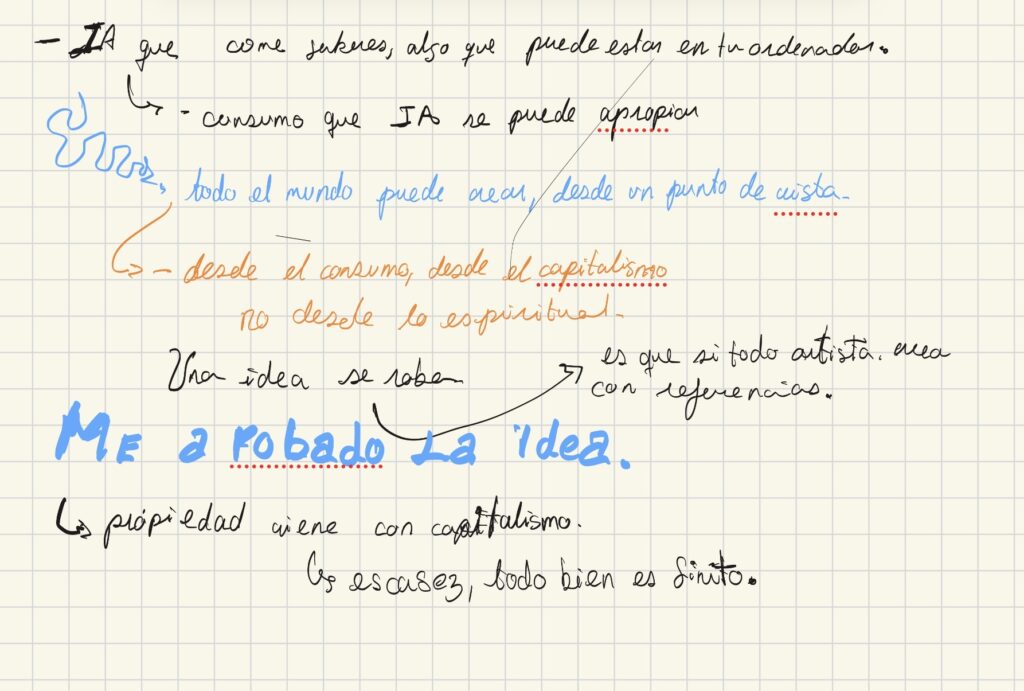 - IA que come saberes, algo que puede estar en tu ordenador.
- consumo que IA se puede apropiar
todo el mundo puede crear, desde un punto de vista.
- desde el consumo, desde el capitalismo
no desde lo espiritual.
Una idea se roba
es que si todo artista. crea
con referencias.
ME a robado La idea.
propiedad viene con capitalismo.
escasez, todo bien es finito.